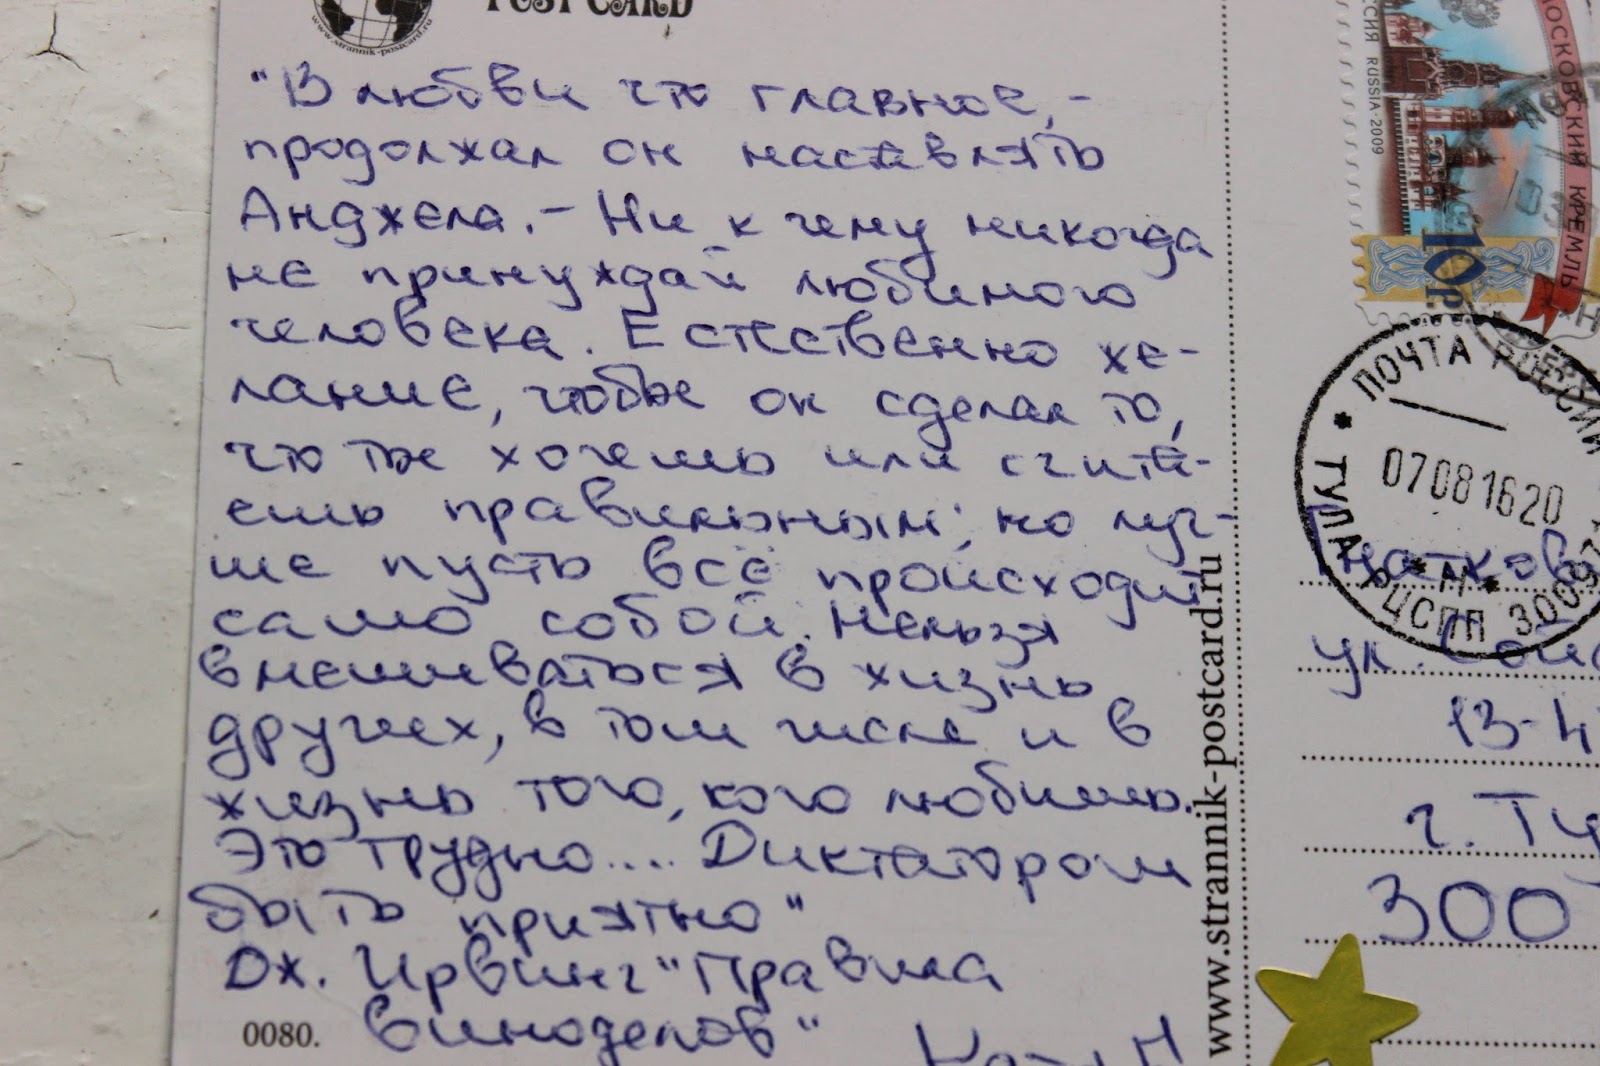 POST CARD
www.strannik-postcard.ru
"В любви что главное, -
продолжал он наставлять
Анджела. - Ни к чему никогда
не принуждай любимого
человека. Естественно же-
лание, чтобы он сделал то,
что ты хочешь или счита-
ешь правильным; но луч-
ше пусть всё происходит
само собой. Нельзя
вмешиваться в жизнь
других, в том числе и в
жизнь того, кого любишь.
Это трудно.... Диктатором
быть приятно"
Дж. Ирвинг "Правила
виноделов"
0080.
www.strannik-postcard.ru
РОССИЯ RUSSIA · 2009
МОСКОВСКИЙ КРЕМЛЬ
10 р.
ПОЧТА РОССИИ
07081620
ТУЛА
РЦСПП
ул.
13-4
г. Ту
300